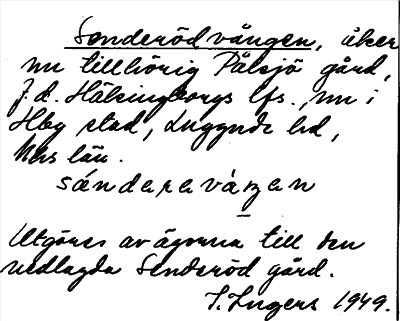 Senderöd vången, åker
nu tillhörig Pålsjö gård,
f.d. Hälsingborgs lfs., nu i
Hbg stad, Luggude hd,
Mhs län.
sándaravåŋan
Utgöres av ägorna till den
nedlagda Senderöd gård.
I. Ingers 1949.